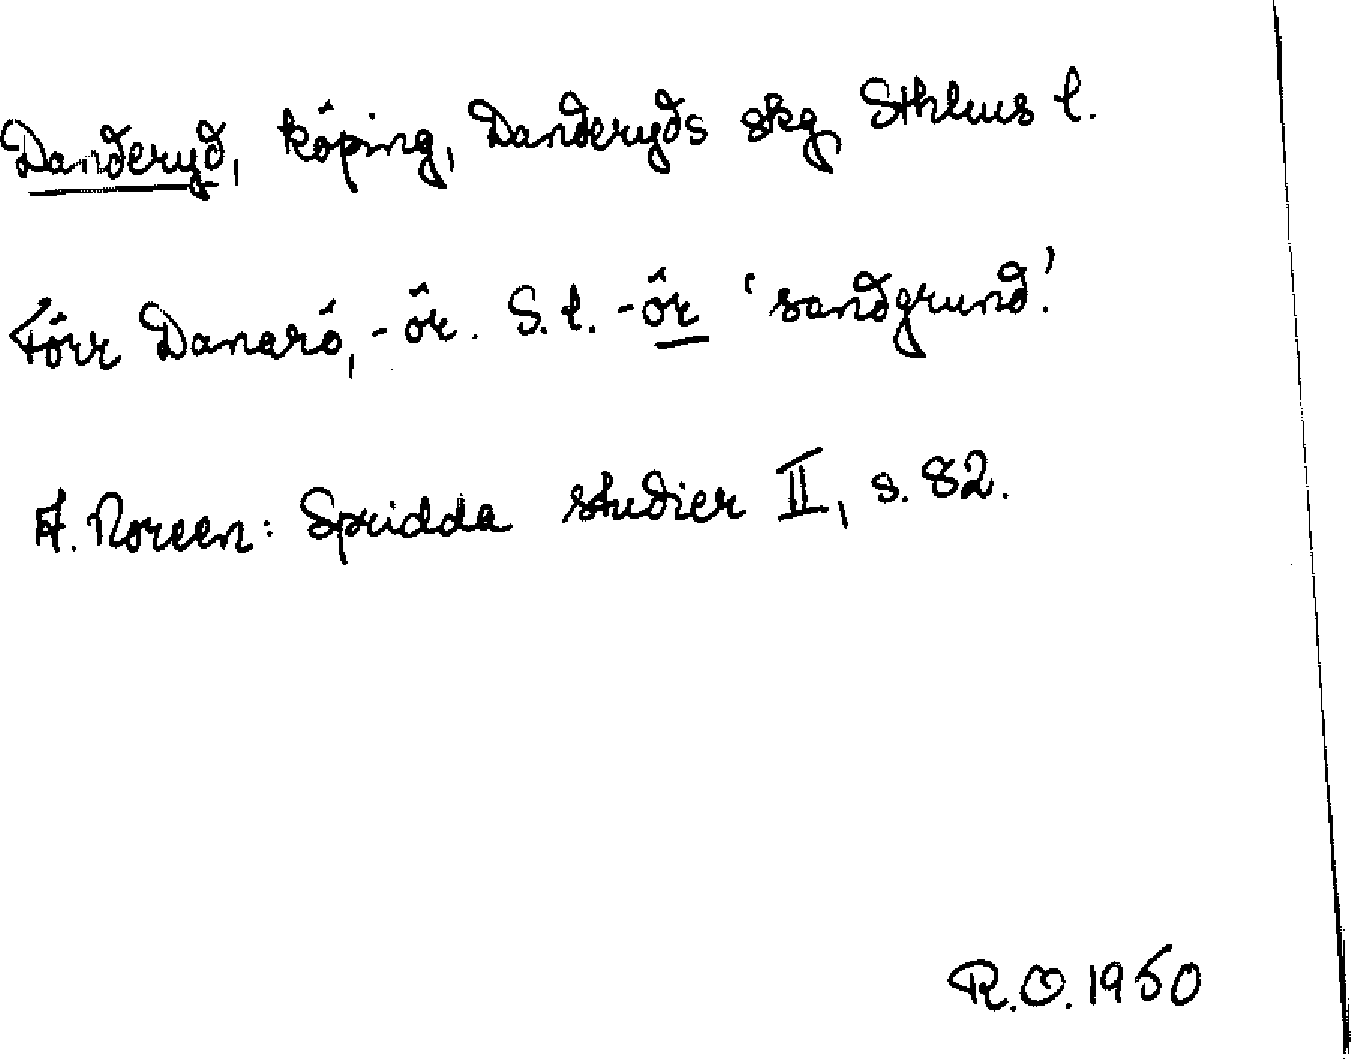 Danderyd, köping, Danderyds skg, Sthlms l.
Förr Danarö, -ör. S.l. -ör 'sandgrund'.
A. Noreen: Spridda studier II, s. 82.
R.O. 1950